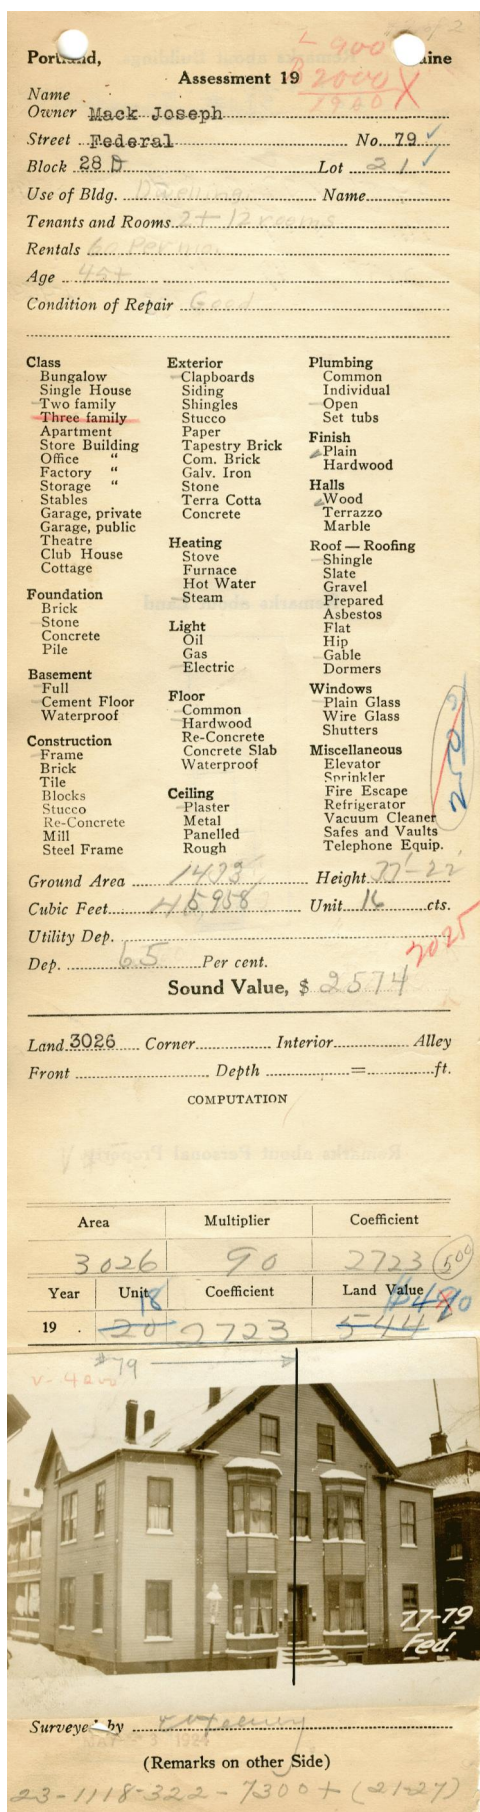 L 900
Portland, Maine
B 2000
Assessment 19
1960
Name
Owner Mack Joseph
Street Federal No. 79
Block 28 D Lot 21
Use of Bldg. Dwelling Name
Tenants and Rooms 2 + 12 rooms
Rentals 60 Per mo.
Age 45+
Condition of Repair Good
Class
Bungalow
Single House
Two family
Three family
Apartment
Store Building
Office "
Factory "
Storage "
Stables
Garage, private
Garage, public
Theatre
Club House
Cottage
Foundation
Brick
Stone
Concrete
Pile
Basement
Full
Cement Floor
Waterproof
Construction
Frame
Brick
Tile
Blocks
Stucco
Re-Concrete
Mill
Steel Frame
Exterior
Clapboards
Siding
Shingles
Stucco
Paper
Tapestry Brick
Com. Brick
Galv. Iron
Stone
Terra Cotta
Concrete
Heating
Stove
Furnace
Hot Water
Steam
Light
Oil
Gas
Electric
Floor
Common
Hardwood
Re-Concrete
Concrete Slab
Waterproof
Ceiling
Plaster
Metal
Panelled
Rough
Plumbing
Common
Individual
Open
Set tubs
Finish
Plain
Hardwood
Halls
Wood
Terrazzo
Marble
Roof — Roofing
Shingle
Slate
Gravel
Prepared
Asbestos
Flat
Hip
Gable
Dormers
Windows
Plain Glass
Wire Glass
Shutters
Miscellaneous
Elevator
Sprinkler
Fire Escape
Refrigerator
Vacuum Cleaner
Safes and Vaults
Telephone Equip.
Ground Area 1473 Height
Cubic Feet 45,958 Unit 16 cts.
Utility Dep.
2025
Dep. 65 Per cent.
Sound Value, $ 2574
Land 3026 Corner Interior Alley
Front Depth = ft.
COMPUTATION
Area Multiplier Coefficient
3026 90 2723 500
Year Unit Coefficient Land Value
18 $490
19 . 20 2723 544
#79
77-79
Fed.
Surveyed by
(Remarks on other Side)
23-1118-322-7300+(21-27)